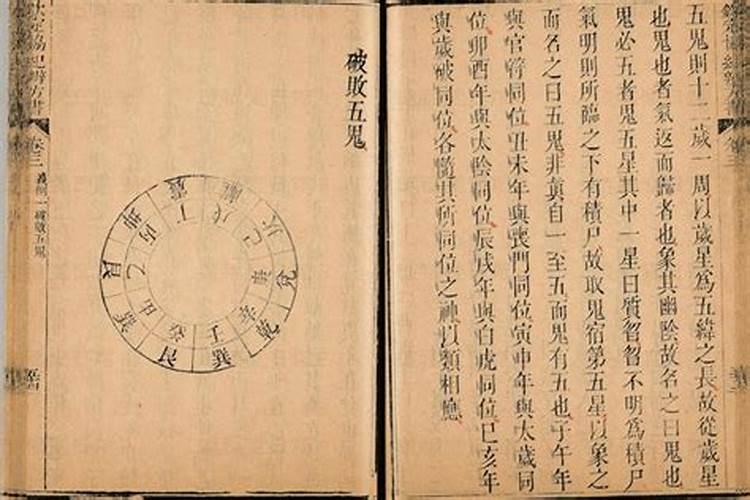 五鬼則十二歲一周以歲星爲五緯之長故從歲星
也鬼也者氣返而歸者也象其幽陰故名之曰鬼也
鬼必五者鬼五星其中一星曰質質不明爲積尸
氣明則所臨之下有積尸故取鬼宿第五星以象之
而名之曰五鬼非真自一至五而鬼有五也子午年
與官符同位丑未年與喪門同位寅申年與太歲同
位卯酉年與太陰同位辰戌年與白虎同位巳亥年
與歲破同位各隨其所同位之神以類相應
卷三
義例一
破敗五鬼
破敗五鬼
丁
戊
己
庚
辛
壬
癸
甲
乙
丙
兌
乾
巽
艮
坤